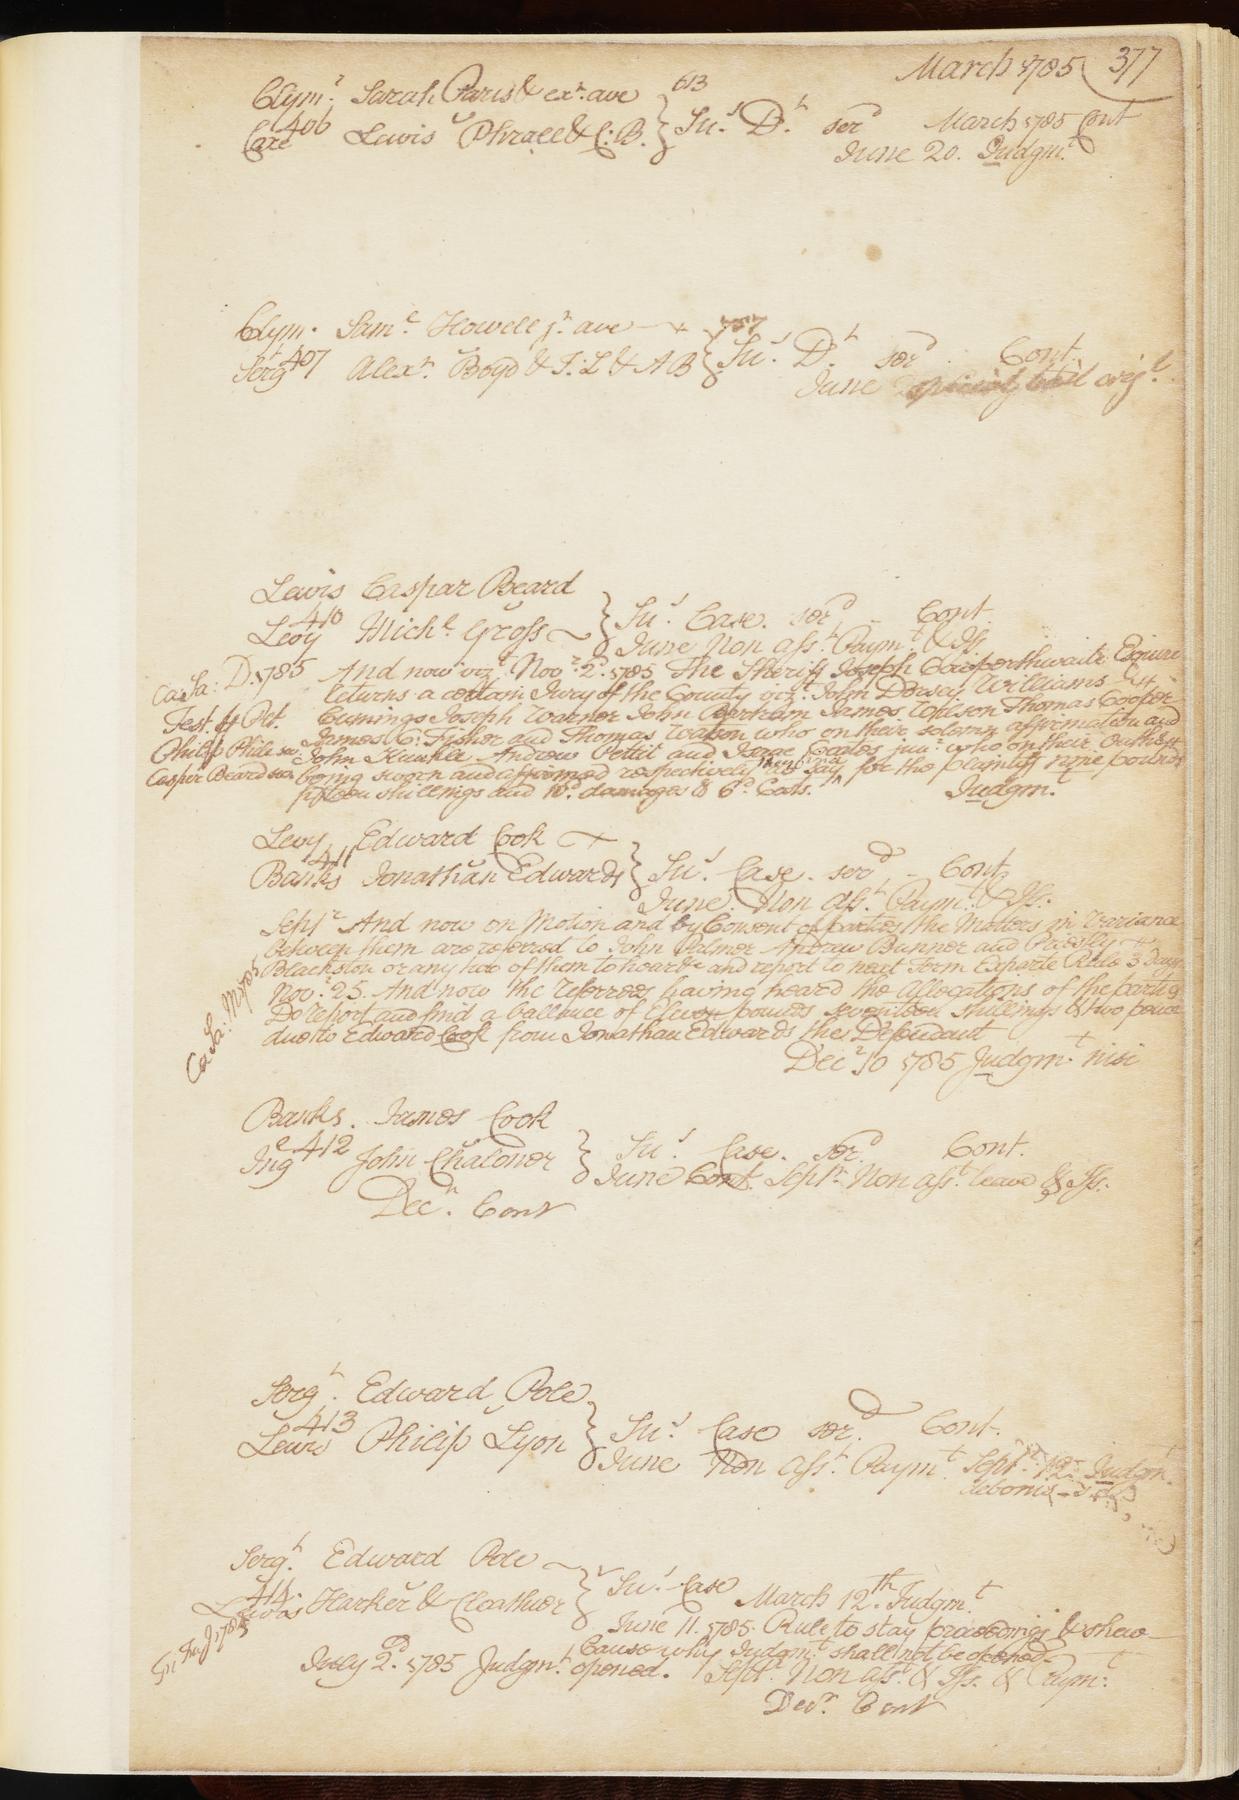 March 1785 377
Clymr Sarah Paris & exr ave 613
Care 406 Lewis Phraee & C: B. Sus Dt serd March 1785 Cont
June 20. Judgmt
Clym. Saml Howell jr ave 757
Sergt 407 Alexr Boyd & T: L & A B Sus. Dt serd Cont.
June origl.
Lewis Caspar Beard
410
Levy Michl Gross Sus Case. serd - Cont.
June Non asst Paymt & Iss.
CaSa: D. 1785 And now vizt Novr 2d 1785 The Sheriff Joseph Cowperthwaite Esquire
returns a certain Jury of the County vizt John Dorsey Williams
Test. for Plt. Cumings Joseph Warner John Bartram James Wilson Thomas Cooper
James C: Fisher and Thomas Watson who on their solemn affirmation and
Philip Phile sw John Kunkle Andrew Pettit and Isaac junr who on their Oaths
Caspar Beard sw being sworn and affirmed respectively do say for the plaintiff nine pounds
fifteen shillings and 10d damages & 6d Costs. Judgmt
Levy Edward Cook
411
Banks Jonathan Edwards Sus. Case. serd - Cont
June. Non asst. Paymt & Iss.
Septr And now on Motion and by Consent of parties the Matters in Variance
between them are referred to John Palmer Andrew Bunner and Presley
Blackston or any two of them to hear &c and report to next Term Exparte Rule 3 days
CaSa: M 1785 Novr 25. And now the Referrees having heard the Allocations of the partys
Do report and find a ballance of Eleven pounds seventeen shillings & two pence
due to Edward Cook from Jonathan Edwards the Defendant
Decr 10 1785 Judgmt nisi
Banks. James Cook
Inge 412 John Chaloner Sus. Case. serd Cont.
June Cont. Septr Non asst leave & Iss.
Decr. Cont
Sergt. Edward Pole
413
Lewis Philip Lyon Sus. Case serd. Cont.
June Non asst. Paymt Septr 12 Judgmt
debonis
Sergt. Edward Pole
414 Harker & Cloathier Sus Case March 12th Judgmt
June 11. 1785. Rule to stay proceedings & shew
Cause why Judgmt shall not be opened
July 2d. 1785 Judgmt opened. Septr Non asst & Iss. & Paymt
Decr. Cont